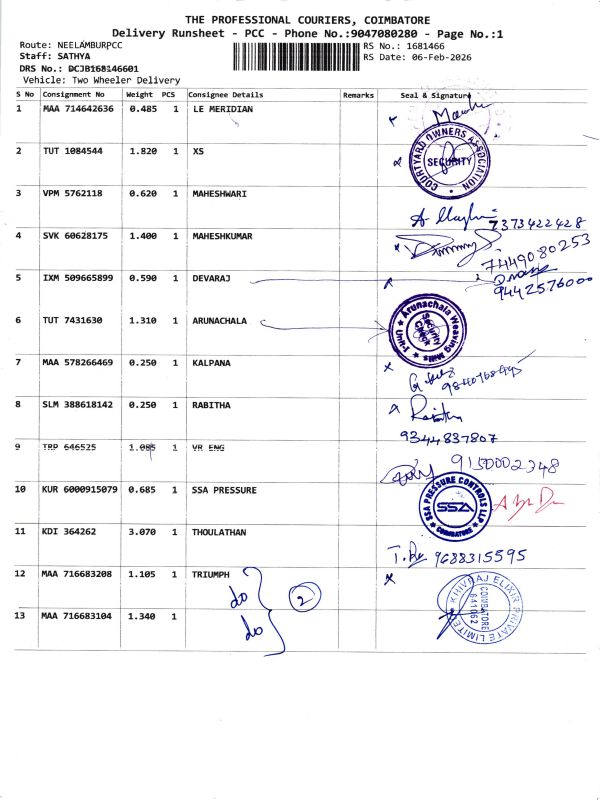 THE PROFESSIONAL COURIERS, COIMBATORE
Delivery Runsheet - PCC - Phone No.:9047080280 - Page No.:1
Route: NEELAMBURPCC
Staff: SATHYA
DRS No.: DCJB168146601
Vehicle: Two Wheeler Delivery
RS No.: 1681466
RS Date: 06-Feb-2026
S No Consignment No Weight PCS Consignee Details Remarks Seal & Signature
1 MAA 714642636 0.485 1 LE MERIDIAN
2 TUT 1084544 1.820 1 XS
COURTYARD OWNERS ASSOCIATION SECURITY
3 VPM 5762118 0.620 1 MAHESHWARI
7373422428
4 SVK 60628175 1.400 1 MAHESHKUMAR
7449080253
5 IXM 509665899 0.590 1 DEVARAJ
9442576000
6 TUT 7431630 1.310 1 ARUNACHALA
Arunachala Weaving Mills Unit-I SECURITY
7 MAA 578266469 0.250 1 KALPANA
8 SLM 388618142 0.250 1 RABITHA
Rabitha
9344837807
9 TRP 646525 1.085 1 VR ENG
9150002348
10 KUR 6000915079 0.685 1 SSA PRESSURE
SSA PRESSURE CONTROLS LLP SSA COIMBATORE
11 KDI 364262 3.070 1 THOULATHAN
9688315595
12 MAA 716683208 1.105 1 TRIUMPH
do 2
do
KHIVRAJ ELIXIR PRIVATE LIMITED COIMBATORE 641062
13 MAA 716683104 1.340 1